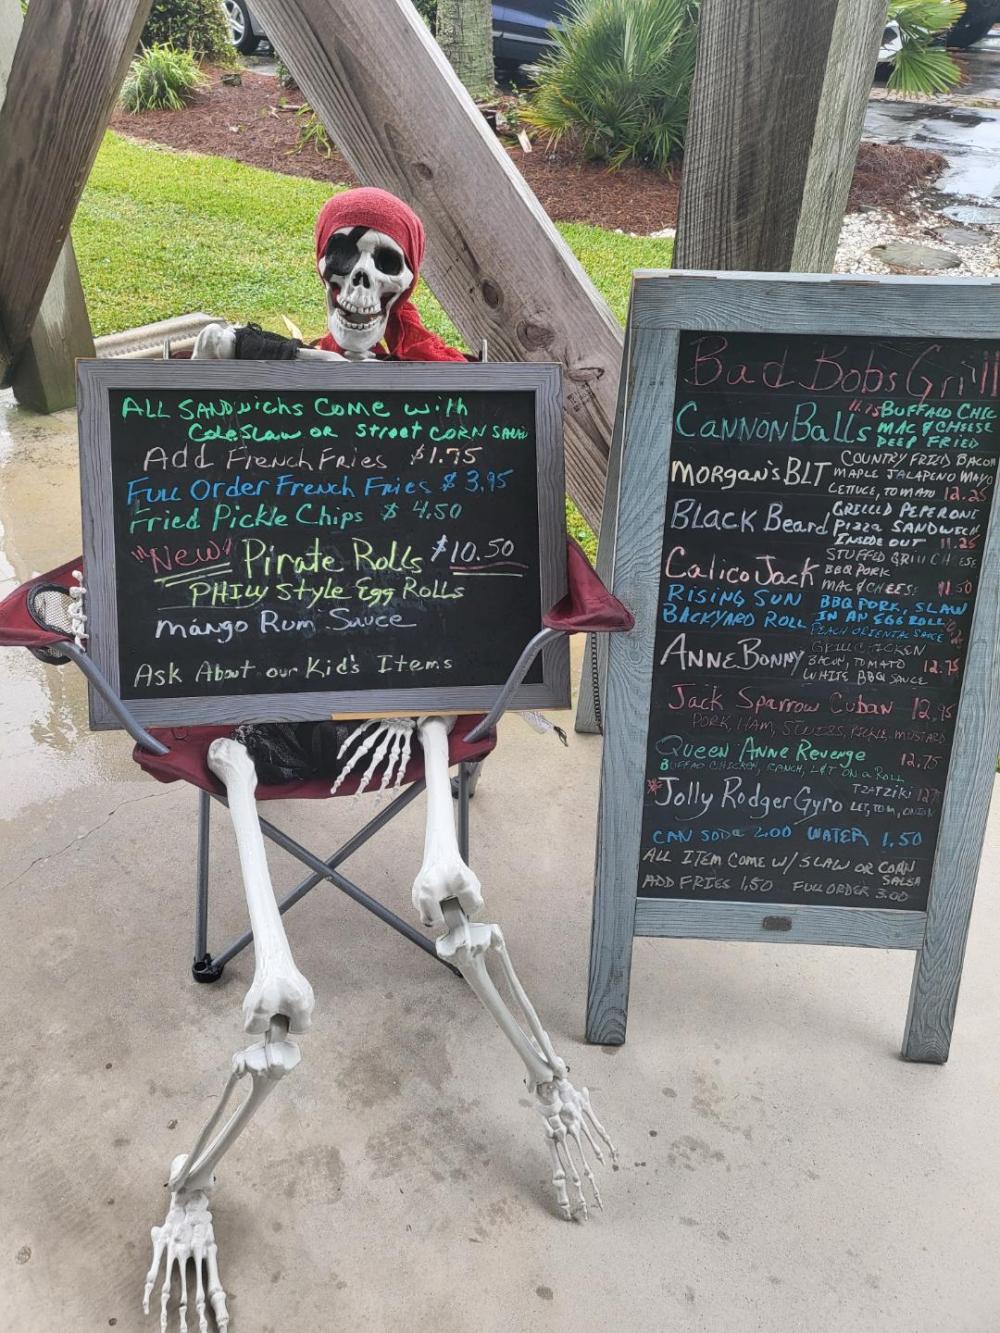 ALL SANDWICHS COME WITH
COLESLAW OR STREET CORN SALAD
ADD FRENCH FRIES $1.75
FULL ORDER FRENCH FRIES $3.95
FRIED PICKLE CHIPS $4.50
"NEW!" PIRATE ROLLS $10.50
PHILLY STYLE EGG ROLLS
MANGO RUM SAUCE
ASK ABOUT OUR KID'S ITEMS
Bad Bobs Grill
CANNON BALLS 11.75 BUFFALO CHIC
MAC & CHEESE
DEEP FRIED
MORGAN'S BLT COUNTRY FRIED BACON
MAPLE JALAPENO MAYO
LETTUCE, TOMATO 12.25
BLACK BEARD GRILLED PEPERONI
PIZZA SANDWICH
INSIDE OUT 11.25
CALICO JACK STUFFED GRILL CHEESE
BBQ PORK
MAC & CHEESE 11.50
RISING SUN BBQ PORK, SLAW
BACKYARD ROLL IN AN EGG ROLL
PEACH ORIENTAL SAUCE
ANNE BONNY GRILL CHICKEN
BACON, TOMATO 12.75
WHITE BBQ SAUCE
JACK SPARROW CUBAN 12.95
PORK, HAM, SWISS, PICKLE, MUSTARD
QUEEN ANNE REVENGE 12.75
CHICKEN, RANCH, L&T ON A ROLL
*JOLLY RODGER GYRO TZATZIKI
LET, TOM, ONION
CAN SODA 2.00 WATER 1.50
ALL ITEM COME W/ SLAW OR CORN
SALSA
ADD FRIES 1.50 FULL ORDER 3.00